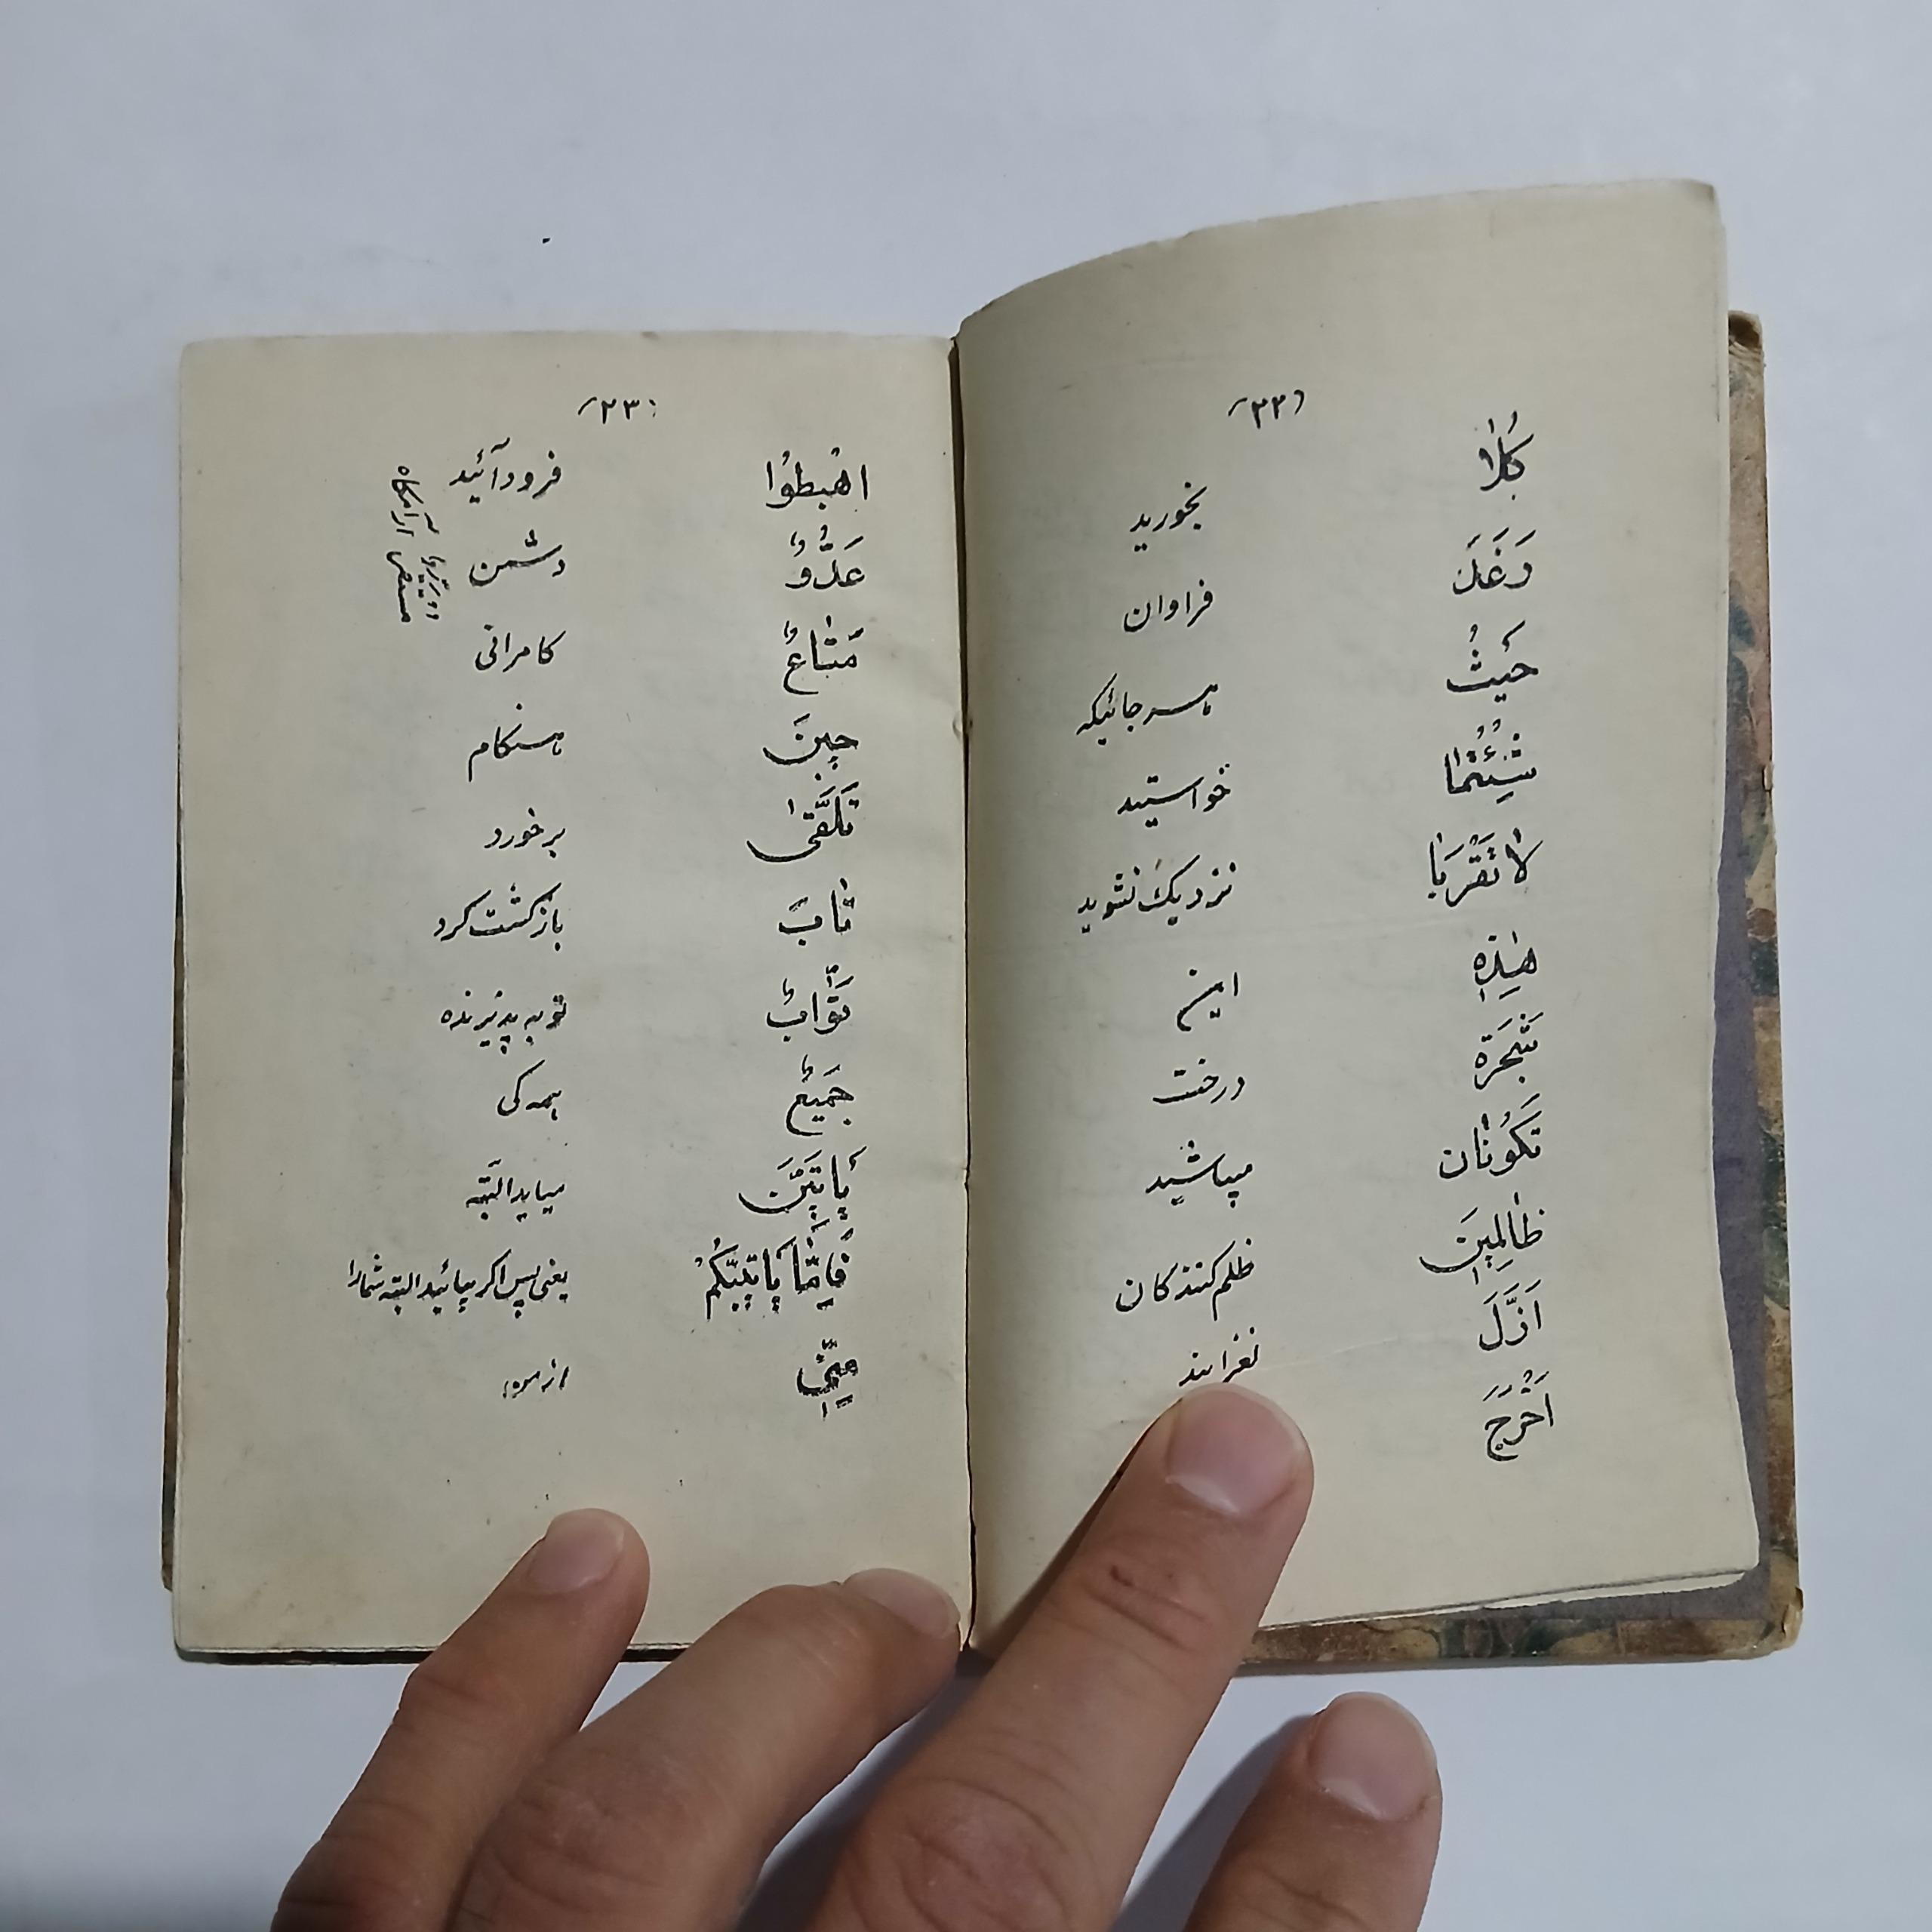 (۲۲)
كُلاٰ بخورید
رَغَدَ فراوان
حَيثُ هرجائیکه
شِئتُمٰا خواستید
لاٰتَقْرَبٰا نزدیک نشوید
هٰذِهِ این
شَجَرَة درخت
تَكُونٰان میباشید
ظٰالِمِينَ ظلم کنندکان
اَزَلَّ لغزانید
اَخْرَجَ
(۲۳)
اهْبِطُوا فرود آئید
عَدُوٌّ دشمن
مَتٰاعٌ کامرانی
حِينَ هنکام
تَلَقّىٰ برخورد
تٰابَ بازکشت کرد
تَوّٰابٌ توبه پذیرنده
جَمِيعٌ همه کی
يَأتِيَنَّ میاید البتّه
فَاِمّٰا يَأتِيَنَّكُمْ یعنی پس اکر بیائید البته شمارا
مِنّى از من
مستقر آرامکاه